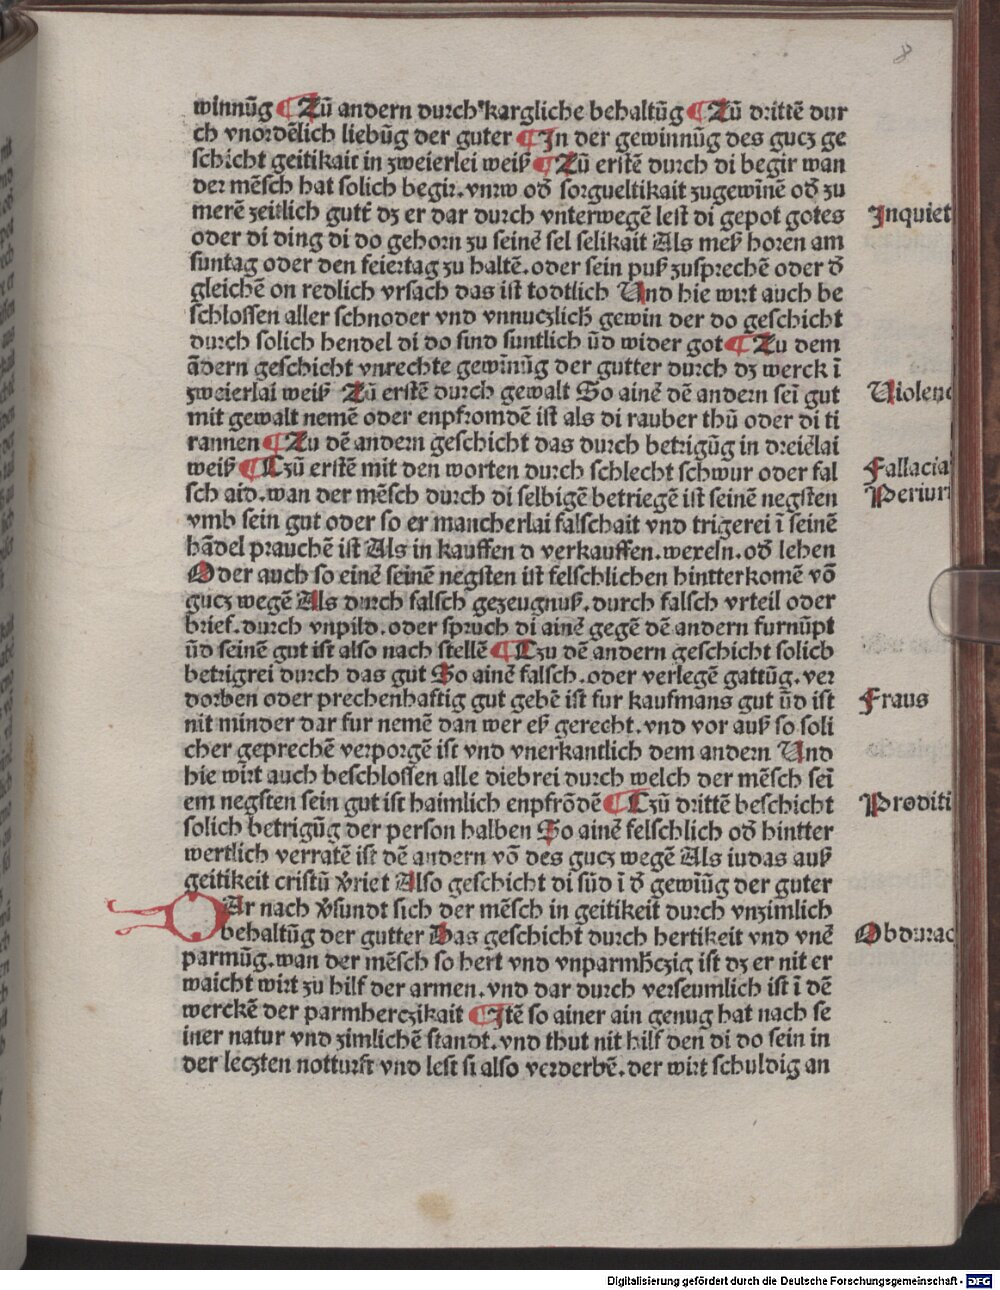 8
winnūg ¶ Zū andern durch kargliche behaltūg ¶ Zū drittē dur
ch vnordēlich liebūg der guter ¶ In der gewinnūg des gucz ge
schicht geitikait in zweierlei weiß ¶ Zū erstē durch di begir wan
der mēsch hat solich begir. vnrw od̄ sorgueltikait zugewīnē od̄ zu
merē zeitlich gutt̄ dz er dar durch vnterwegē lest di gepot gotes
Inquiet
oder di ding di do gehorn zu seinē sel selikait Als meß horen am
suntag oder den feiertag zu haltē. oder sein puß zusprechē oder d̄
gleichē on redlich vrsach das ist todtlich Und hie wirt auch be
schlossen aller schnoder vnd vnnuczlich gewin der do geschicht
durch solich hendel di do sind suntlich ūd wider got ¶ Zu dem
ādern geschicht vnrechte gewīnūg der gutter durch dz werck ī
zweierlai weiß Zū erstē durch gewalt So ainē dē andern seī gut
Uiolenc
mit gewalt nemē oder enpfromdē ist als di rauber thū oder di ti
rannen ¶ Zu dē andern geschicht das durch betrigūg in dreiēlai
weiß ¶ Czū erstē mit den worten durch schlecht schwur oder fal
Fallacia
sch aid. wan der mēsch durch di selbigē betriegē ist seinē negsten
Periuri
vmb sein gut oder so er mancherlai falschait vnd trigerei ī seinē
hādel prauchē ist Als in kauffen d verkauffen. wexeln. od̄ lehen
Oder auch so einē seinē negsten ist felschlichen hintterkomē vō
gucz wegē Als durch falsch gezeugnuß. durch falsch vrteil oder
brief. durch vnpild. oder spruch di ainē gegē dē andern furnūpt
ūd seinē gut ist also nach stellē ¶ Czu dē andern geschicht solich
betrigrei durch das gut So ainē falsch. oder verlegē gattūg. ver
dorben oder prechenhaftig gut gebē ist fur kaufmans gut ūd ist
Fraus
nit minder dar fur nemē dan wer eß gerecht. vnd vor auß so soli
cher geprechē verporgē ist vnd vnerkantlich dem andern Und
hie wirt auch beschlossen alle diebrei durch welch der mēsch seī
em negsten sein gut ist haimlich enpfrōdē ¶ Czū drittē beschicht
Proditi
solich betrigūg der person halben So ainē felschlich od̄ hintter
wertlich verratē ist dē andern vō des gucz wegē Als iudas auß
geitikeit cristū v̄riet Also geschicht di sūd ī d̄ gewīūg der guter
DAr nach v̄sundt sich der mēsch in geitikeit durch vnzimlich
behaltūg der gutter Das geschicht durch hertikeit vnd vnē
Obdurac
parmūg. wan der mēsch so hert vnd vnparmh̄czig ist dz er nit er
waicht wirt zu hilf der armen. vnd dar durch verseumlich ist ī dē
werckē der parmherczikait ¶ Itē so ainer ain genug hat nach se
iner natur vnd zimlichē standt. vnd thut nit hilf den di do sein in
der leczten notturft vnd lest si also verderbē. der wirt schuldig an
Digitalisierung gefördert durch die Deutsche Forschungsgemeinschaft - DFG